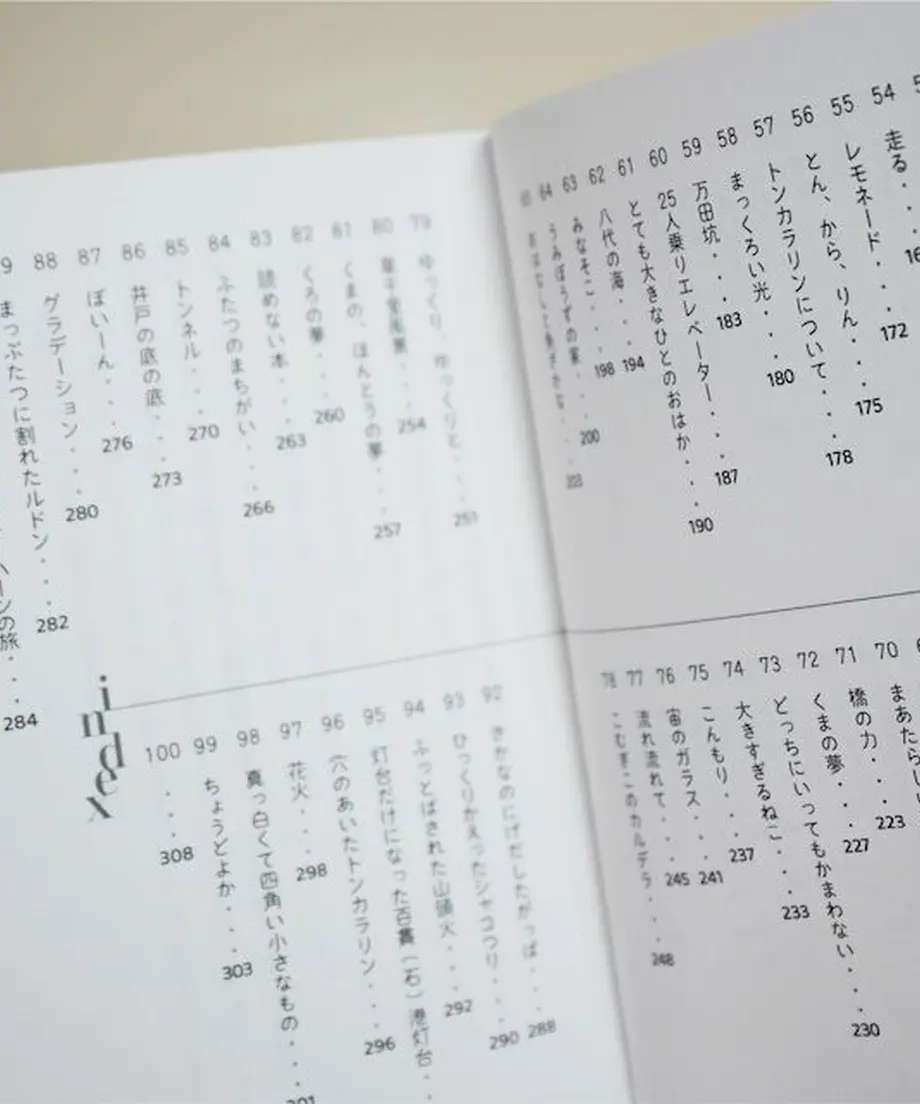 54 走る・・・
55 レモネード・・・172
56 とん、から、りん・・・175
57 トンカラリンについて・・・178
58 まっくろい光・・・180
59 万田坑・・・183
60 25人乗りエレベーター・・・187
61 とても大きなひとのおはか・・・190
62 八代の海・・・194
63 みなそこ・・・198
64 うみぼうずの家・・・200
70 橋の力・・・223
71 くまの夢・・・227
72 どっちにいってもかまわない・・・230
73 大きすぎるねこ・・・233
74 こんもり・・・237
75 宙のガラス・・・241
76 流れ流れて・・・245
77 こむぎこのカルデラ・・・248
78
79 ゆっくり、ゆっくりと・・・251
80 254
81 くまの、ほんとうの夢・・・257
82 くろの夢・・・260
83 読めない本・・・263
84 ふたつのまちがい・・・266
85 トンネル・・・270
86 井戸の底の底・・・273
87 ぼいーん・・・276
88 グラデーション・・・280
まっぷたつに割れたルドン・・・282
の旅・・・284
92 さかなのにげだしたがっぱ・・・288
93 ひっくりかえったシャコつり・・・290
94 ふっとばされた山頭火・・・292
95 灯台だけになった百貫（石）港灯台・
96 穴のあいたトンカラリン・・・296
97 花火・・・298
98 真っ白くて四角い小さなもの・・・
99 ちょうどよか・・・303
100 ・・・・308
index